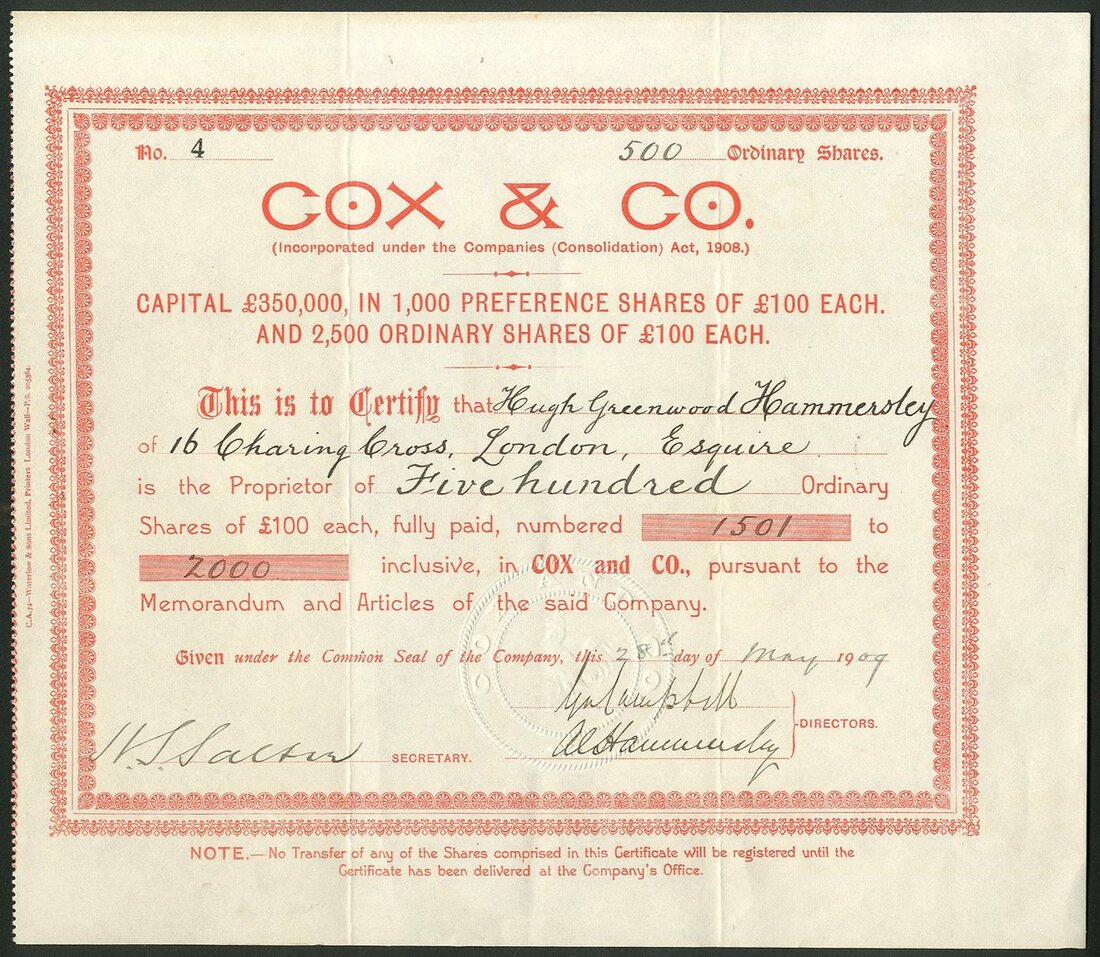 No. 4 500 Ordinary Shares.
COX & CO.
(Incorporated under the Companies (Consolidation) Act, 1908.)
CAPITAL £350,000, IN 1,000 PREFERENCE SHARES OF £100 EACH.
AND 2,500 ORDINARY SHARES OF £100 EACH.
This is to Certify that Hugh Greenwood Hammersley
of 16 Charing Cross, London, Esquire
is the Proprietor of Five hundred Ordinary
Shares of £100 each, fully paid, numbered 1501 to
2000 inclusive, in COX and CO., pursuant to the
Memorandum and Articles of the said Company.
Given under the Common Seal of the Company, this 28th day of May 1909
Campbell
Hammersley
DIRECTORS.
SECRETARY.
NOTE.—No Transfer of any of the Shares comprised in this Certificate will be registered until the
Certificate has been delivered at the Company's Office.
C.A.74—Waterlow & Sons Limited, Printers London Wall—P.S.